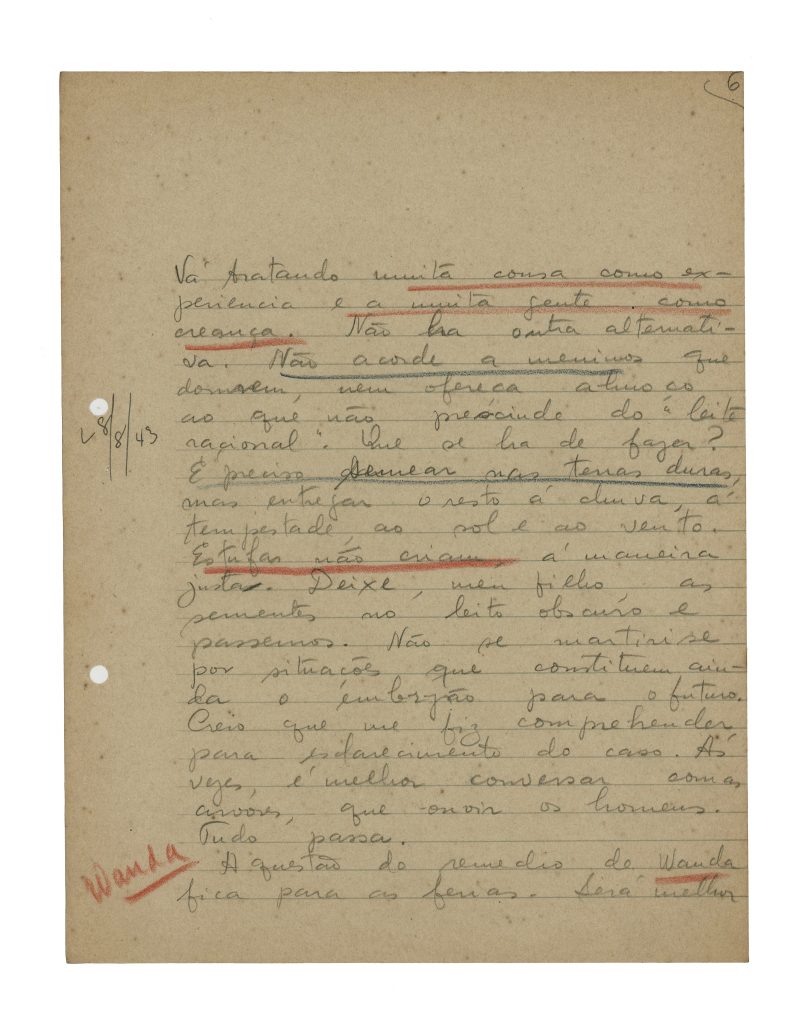 6
Vá tratando muita cousa como ex-
periencia e a muita gente : como
creança. Não ha outra alternati-
va. Não acorde a meninos que
dormem, nem ofereça almoço
ao que não prescinde do "leite
racional". Que se ha de fazer?
É preciso semear nas terras duras,
mas entregar o resto á chuva, á
tempestade, ao sol e ao vento.
Estufas não criam, á maneira
justa. Deixe, meu filho as
sementes no leito obscuro e
passemos. Não se martirise
por situações que constituem ain-
da o embrião para o futuro.
Creio que me fiz comprehender
para esclarecimento do caso. Ás
vezes, é melhor conversar com as
arvores, que ouvir os homens.
Tudo passa.
A questão do remedio de Wanda
fica para as ferias. Será melhor
8/8/43
Wanda